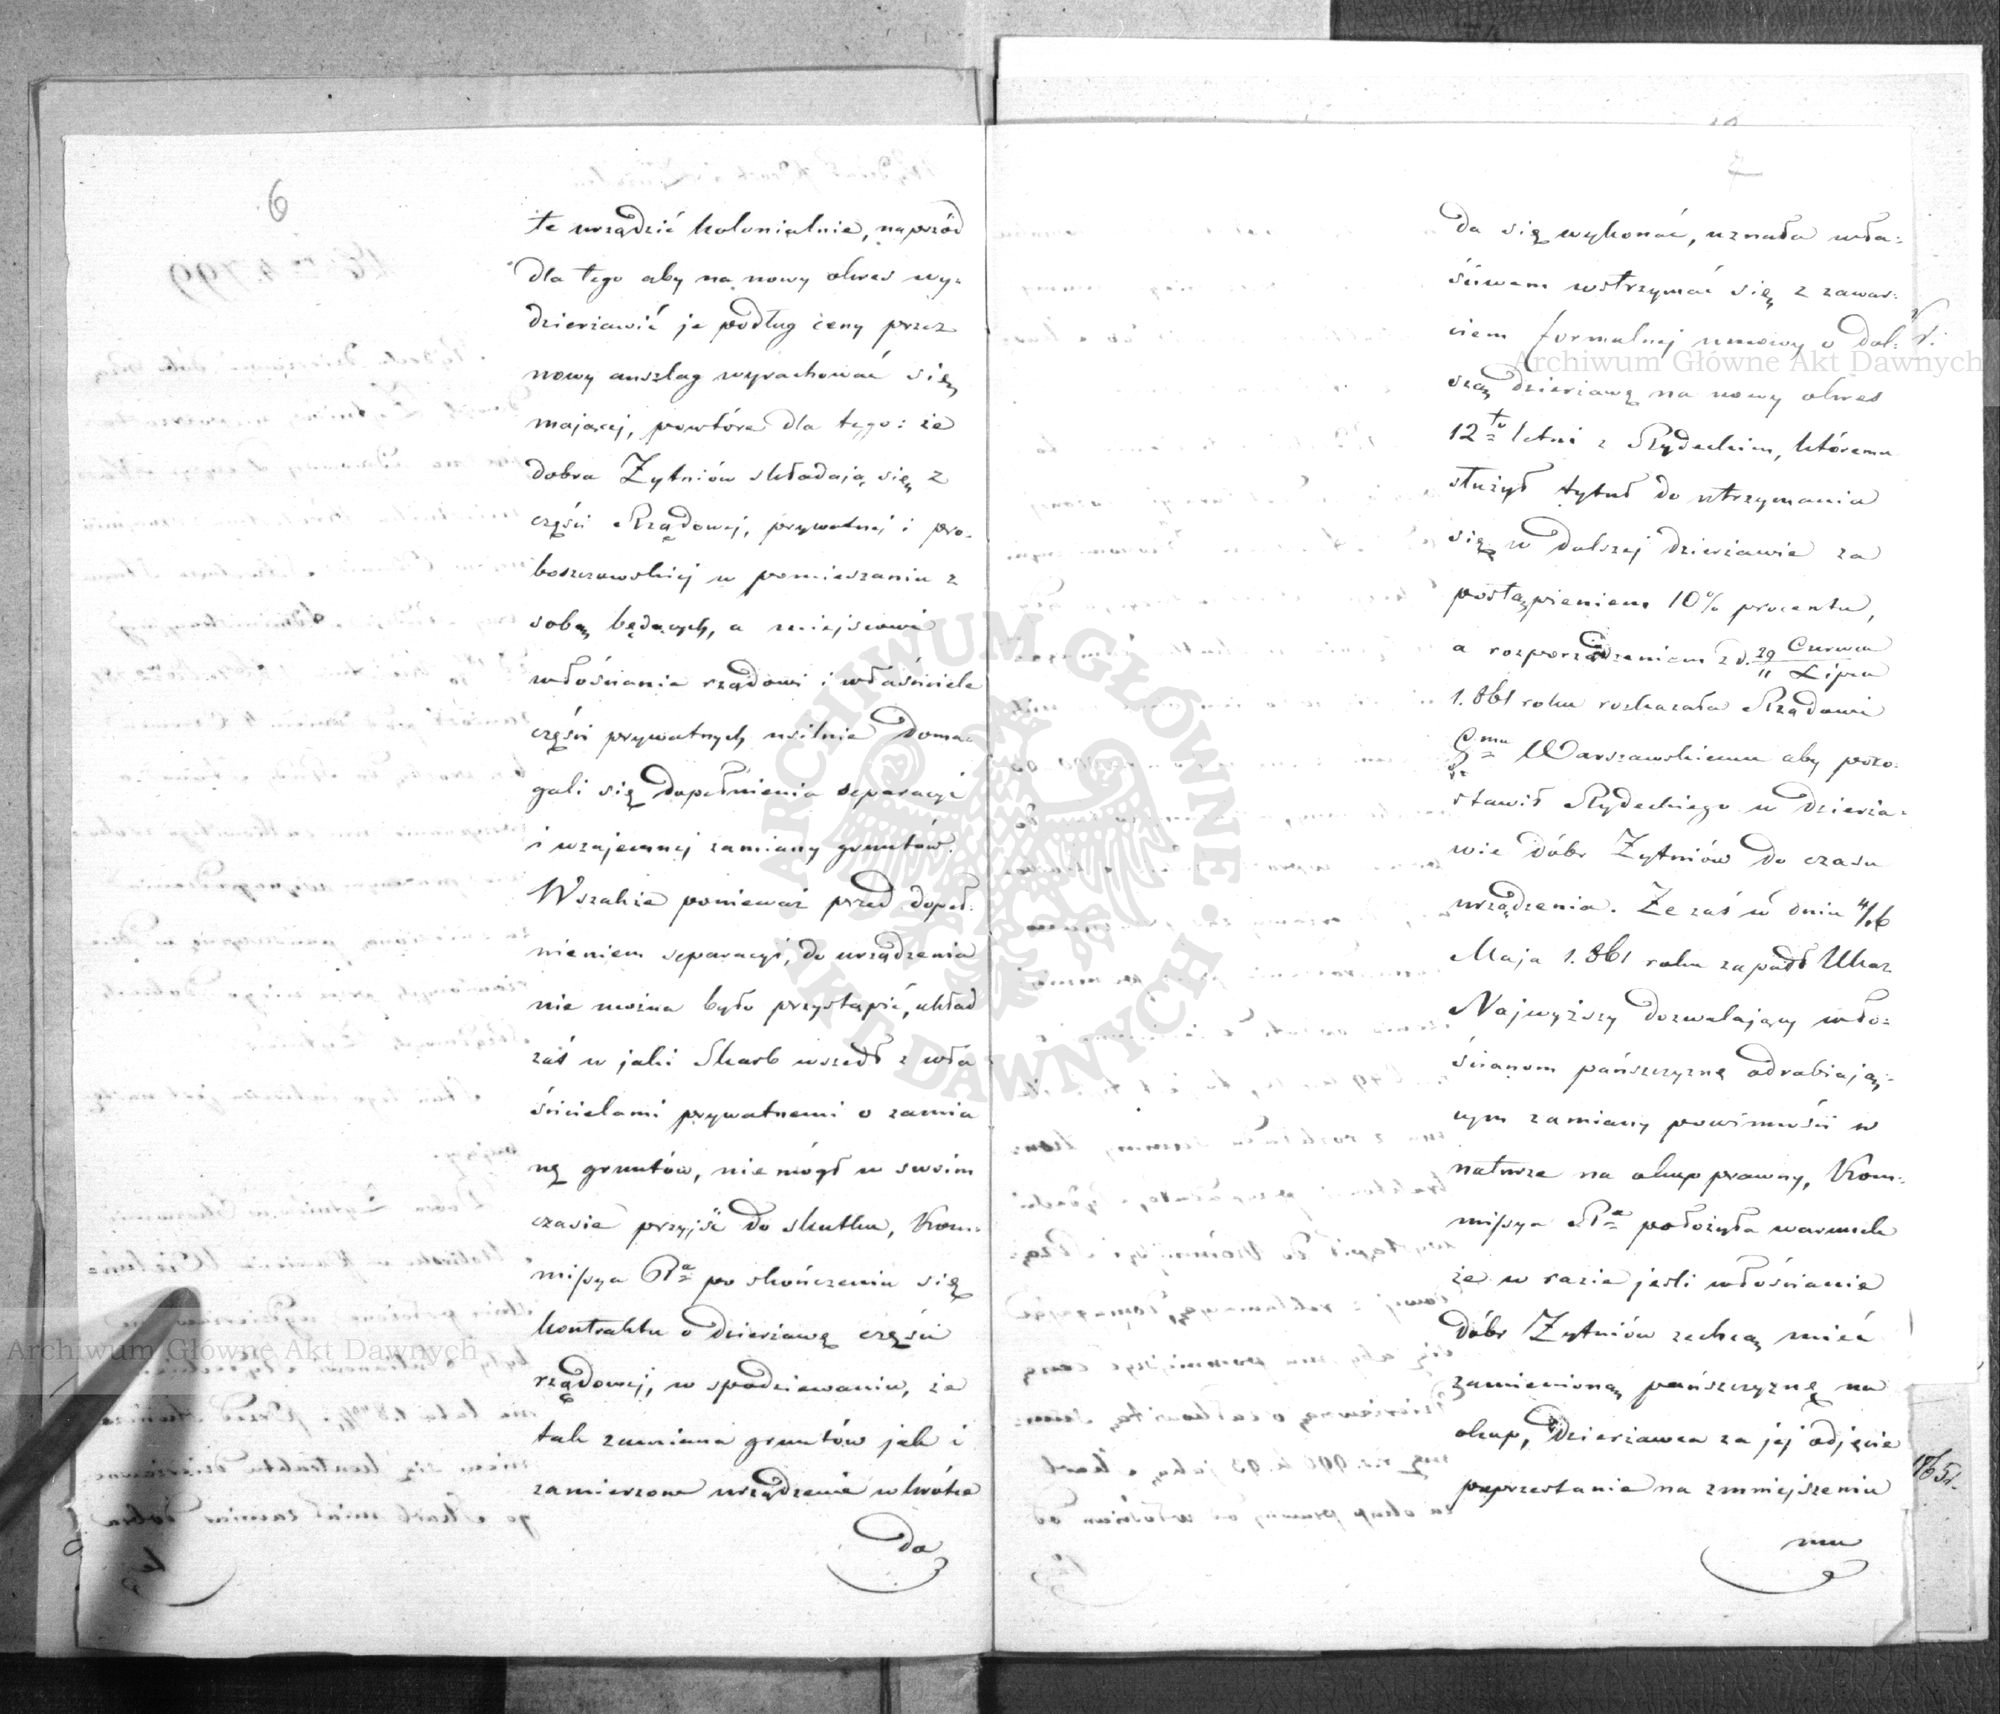 6
te urządzić kolonialnie, naprzód
dla tego aby na nowy okres wy-
dzierżawić je podług ceny przez
nowy anszlag wyrachować się
mającej, powtóre dla tego: że
dobra Żytniów składają się z
części Rządowej, prywatnej i pro-
boszczowskiej w pomieszaniu z
sobą będących, a miejscowi
włościanie rządowi i właściciele
części prywatnych usilnie doma-
gali się dopełnienia separacyi
i wzajemnej zamiany gruntów.
Wszakże ponieważ przed dopeł-
nieniem separacyi, do urządzenia
nie można było przystąpić, układ
zaś w jaki Skarb wszedł z wła
ścicielami prywatnemi o zamia
nę gruntów, nie mógł w swoim
czasie przyjść do skutku, Kom-
missya Pa po skończeniu się
kontraktu o dzierżawę części
rządowej, w spodziewaniu, że
tak zamiana gruntów jak i
zamierzone urządzenie wkrótce
da
7
da się wykonać, uznała wła-
ściwem wstrzymać się z zawar-
ciem formalnej umowy o dal-
szą dzierżawę na nowy okres
12to letni z Rydeckim, któremu
służył tytuł do utrzymania
się w dalszej dzierżawie za
postąpieniem 10% procentu,
a rozporządzeniem z d. 29 Czerwca / 11 Lipca
1861 roku rozkazała Rządowi
Gmu Warszawskiemu aby pozo-
stawił Rydeckiego w dzierża-
wie dóbr Żytniów do czasu
urządzenia. Że zaś w dniu 4/16
Maja 1861 roku zapadł Ukaz
Najwyższy dozwalający wło-
ścianom pańszczyznę odrabiają-
cym zamiany powinności w
naturze na okup prawny, Kom-
missya Pa położyła warunek
że w razie jeśli włościanie
dóbr Żytniów zechcą mieć
zamienioną pańszczyznę na
okup, dzierżawca za jej odjęcie
poprzestanie na zmniejszeniu
mu
Archiwum Główne Akt Dawnych
Archiwum Główne Akt Dawnych
ARCHIWUM GŁÓWNE AKT DAWNYCH